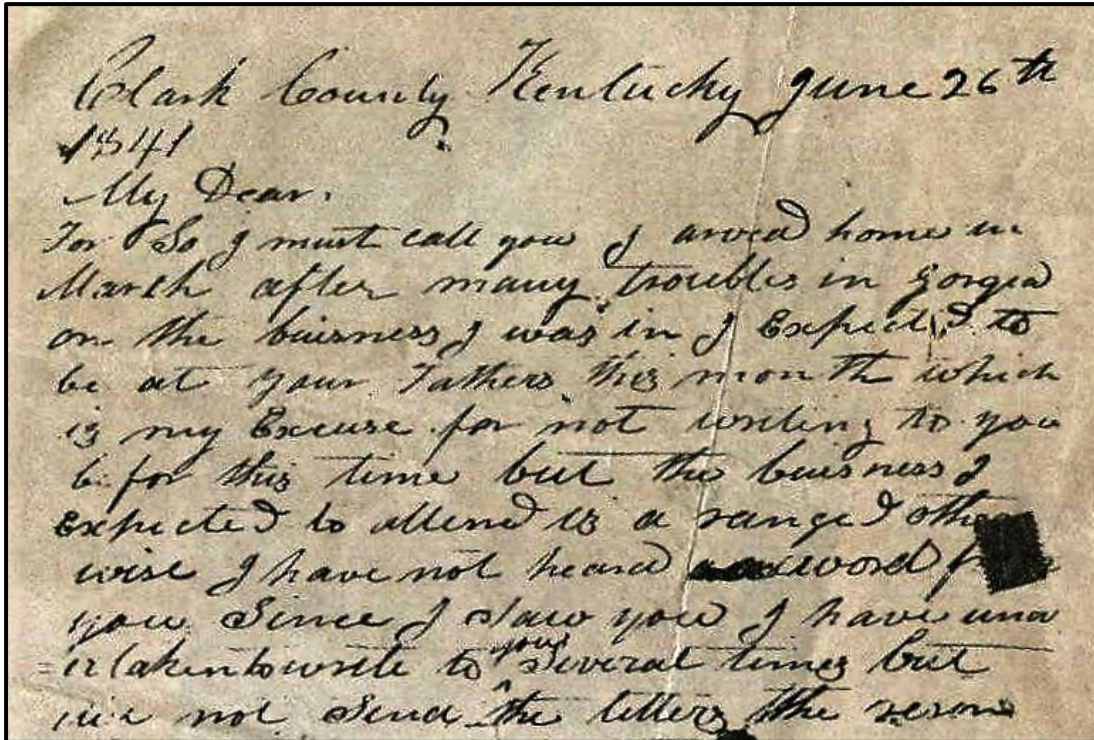 Clark County Kentucky June 26th
1841
My Dear.
For So I must call you I arved home in
March after many troubles in Gorgea
on the buisness I was in I Expected to
be at your Fathers this month which
is my Excuse for not writing to you
be for this time but the buisness I
Expected to attend is a ranged othe
wise I have not heard a word
you Since I Saw you I have und
er taken to write to you Several times but
not Send the letters the reson